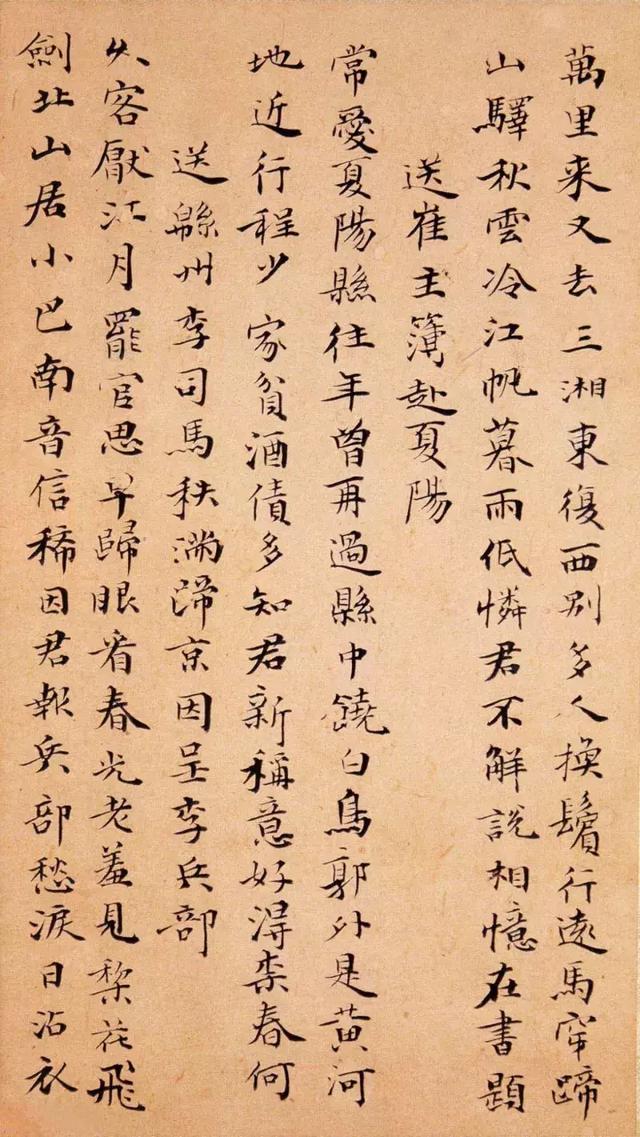 萬里来又去三湘東復西別多人換鬢行遠馬穿蹄
山驛秋雲冷江帆暮雨低憐君不解説相憶在書題
送崔主簿赴夏陽
常愛夏陽縣往年曾再過縣中饒白鳥郭外是黄河
地近行程少家貧酒債多知君新稱意好得柰春何
送緜州李司馬秩滿歸京因呈李兵部
久客厭江月罷官思早歸眼看春光老羞見棃花飛
劍北山居小巴南音信稀因君報兵部愁淚日沾衣